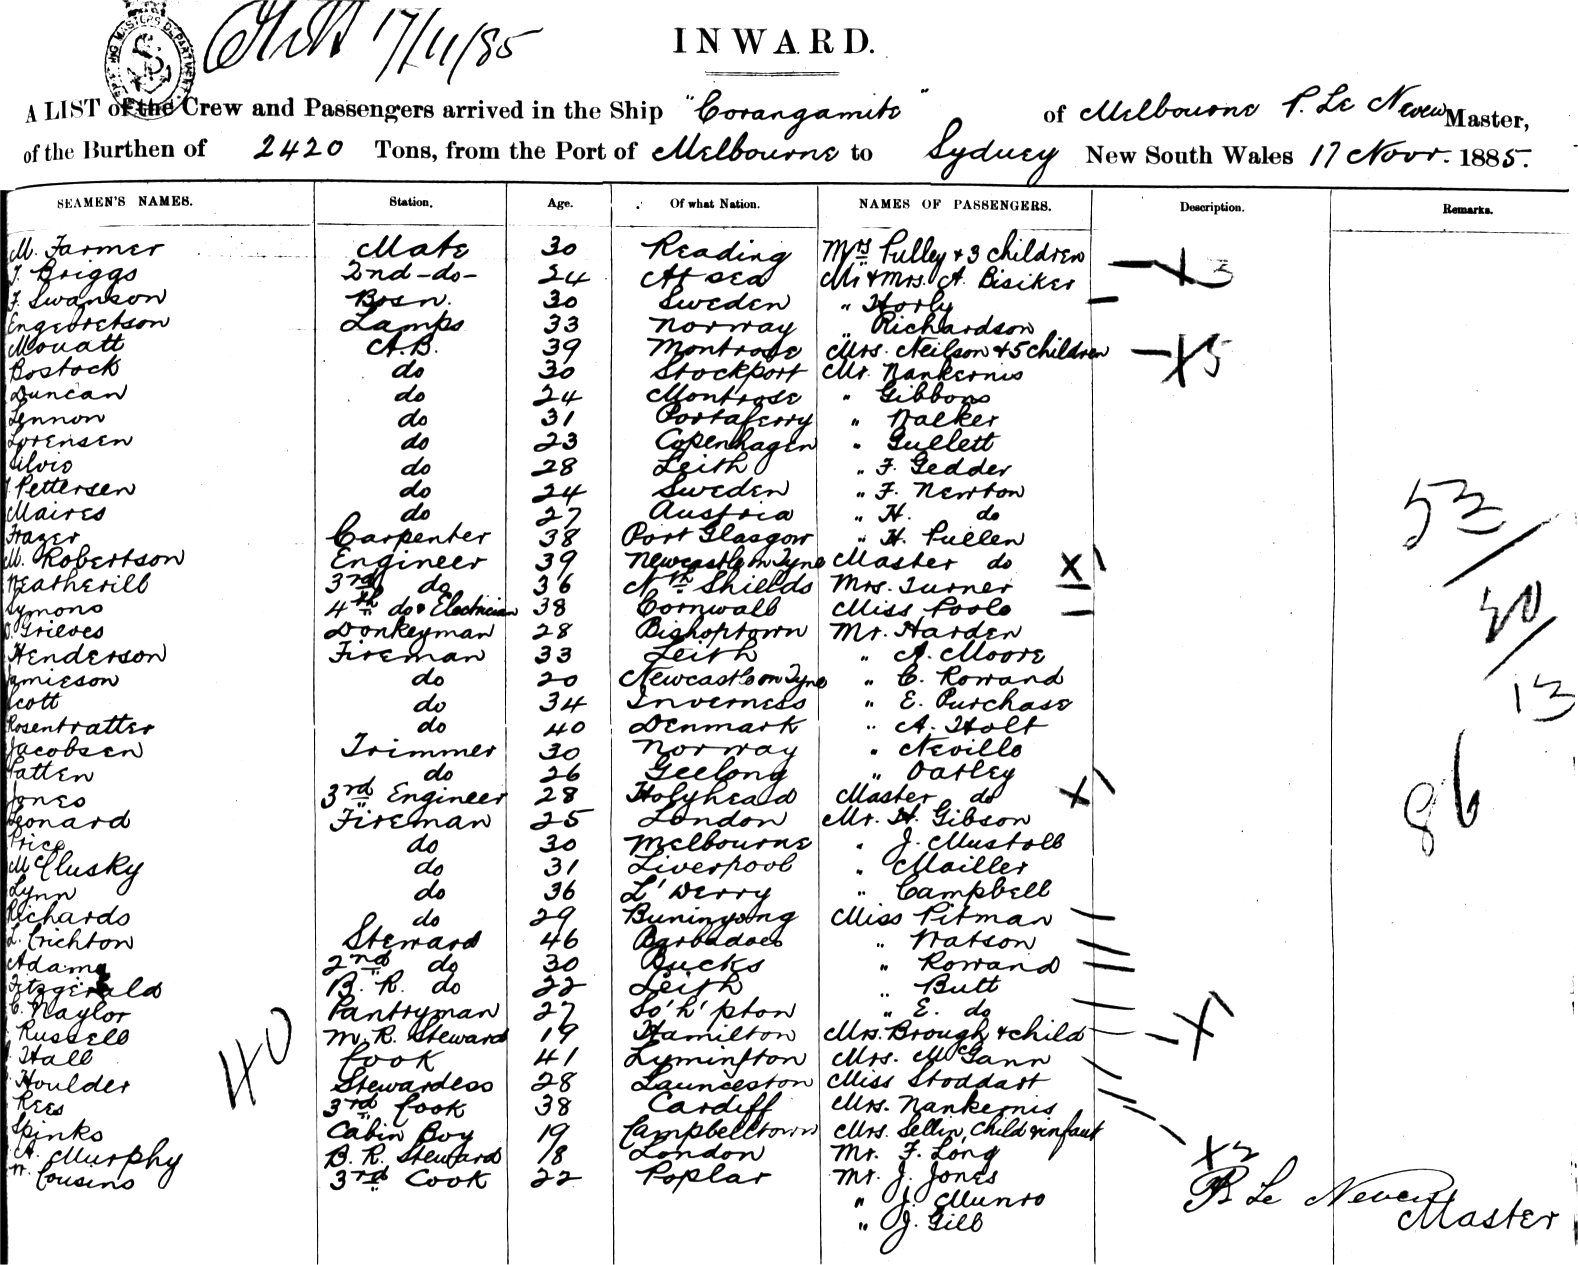 17/11/85
INWARD.
A LIST of the Crew and Passengers arrived in the Ship "Corangamite" of Melbourne P. Le Neveu Master,
of the Burthen of 2420 Tons, from the Port of Melbourne to Sydney New South Wales 17 Novr. 1885.
SEAMEN'S NAMES. Station. Age. Of what Nation. NAMES OF PASSENGERS. Description. Remarks.
M. Farmer Mate 30 Reading Mrs Pulley & 3 children X 3
T. Briggs 2nd -do- 24 At sea Mr & Mrs. A. Bisiker
F. Swanson Bosn. 30 Sweden " Horly
Engebretson Lamps 33 Norway " Richardson
Mouatt A.B. 39 Montrose Mrs. Neilson & 5 children X 5
Bostock do 30 Stockport Mr. Nankernis
Duncan do 24 Montrose " Gibbons
Lennon do 31 Portaferry " Walker
Lorensen do 23 Copenhagen " Gullett
Silvio do 28 Leith " F. Gedder
Pettersen do 24 Sweden " F. Newton
Maires do 27 Austria " H. do
Frazer Carpenter 38 Port Glasgow " H. Pullen
M. Robertson Engineer 39 Newcastle on Tyne Master do X 1
Weatherill 3rd do 36 Nth Shields Mrs. Turner
Symons 4th do & Electrician 38 Cornwall Miss Poole
Grieves Donkeyman 28 Bishoptown Mr. Harden
Henderson Fireman 33 Leith " A. Moore
Jamieson do 20 Newcastle on Tyne " C. Rowand
Scott do 34 Inverness " E. Purchase
Rosentratter do 40 Denmark " A. Holt
Jacobsen Trimmer 30 Norway " Neville
Patten do 26 Geelong " Oatley
Jones 3rd Engineer 28 Holyhead Master do X 1
Leonard Fireman 25 London Mr. H. Gibson
Price do 30 Melbourne " J. Mustoll
McClusky do 31 Liverpool " Mailler
Lynn do 36 L'Derry " Campbell
Richards do 29 Buninyong Miss Pitman
L. Crichton Steward 46 Barbadoes " Watson
Adams 2nd do 30 Bucks " Rowand
Fitzgerald B. R. do 22 Leith " Butt
C. Naylor Pantryman 27 So'h'pton " E. do
Russell M. R. Steward 19 Hamilton Mrs. Brough & child X 1
Hall Cook 41 Lymington Mrs. McGann
Houlder Stewardess 28 Launceston Miss Stoddart
Rees 3rd Cook 38 Cardiff Mrs. Nankernis
Spinks Cabin Boy 19 Campbelltown Mrs. Sellin, Child & infant X 2
A. Murphy B. R. Steward 18 London Mr. F. Long
W. Cousins 3rd Cook 22 Poplar Mr. J. Jones
" J. Munro
" J. Gill
40
53/20/13
86
P. Le Neveu
Master